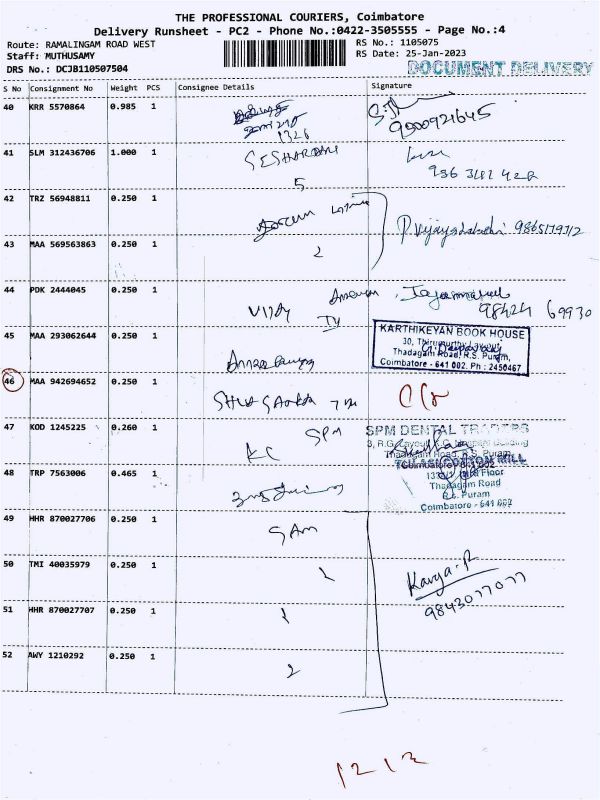 THE PROFESSIONAL COURIERS, Coimbatore
Delivery Runsheet - PC2 - Phone No.:0422-3505555 - Page No.:4
Route: RAMALINGAM ROAD WEST
RS No.: 1105075
Staff: MUTHUSAMY
RS Date: 25-Jan-2023
DRS No.: DCJB110507504
DOCUMENT DELIVERY
S No Consignment No Weight PCS Consignee Details Signature
40 KRR 5570864 0.985 1
1326
9000921645
41 SLM 312436706 1.000 1
5
42 TRZ 56948811 0.250 1
P. Vijayalakshmi 9865179712
43 MAA 569563863 0.250 1
2
44 PDK 2444045 0.250 1
VIJAY
98424 69930
45 MAA 293062644 0.250 1
KARTHIKEYAN BOOK HOUSE
30, Thirumurthy Layout,
Thadagam Road, R.S. Puram,
Coimbatore - 641 002. Ph : 2450467
46 MAA 942694652 0.250 1
47 KOD 1245225 0.260 1
KC SPM
SPM DENTAL TRADERS
Thadagam Road, R.S. Puram,
Coimbatore - 641 002
48 TRP 7563006 0.465 1
Floor
Thadagam Road
R.S. Puram
Coimbatore - 641 002
49 HHR 870027706 0.250 1
SAM
50 TMI 40035979 0.250 1
Kavya.R
9843077077
51 HHR 870027707 0.250 1
52 AWY 1210292 0.250 1
2
1212